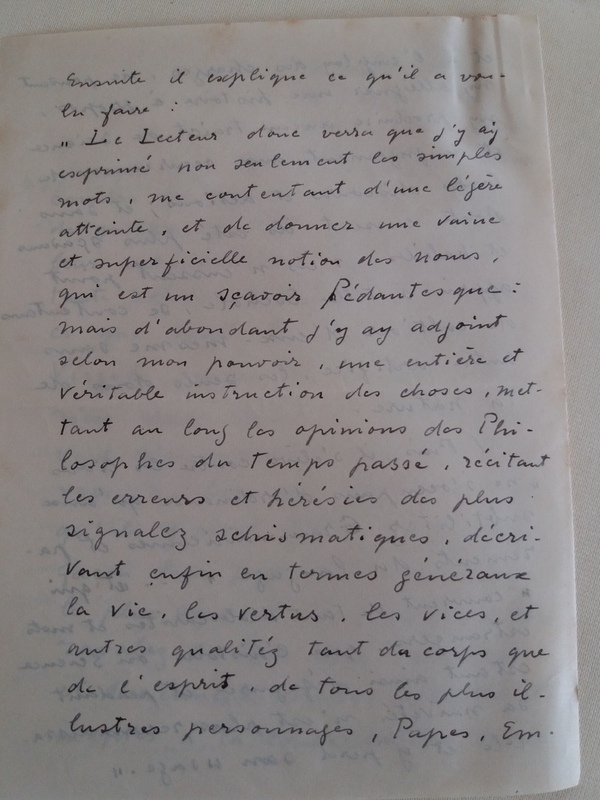 Ensuite il explique ce qu'il a vou-
lu faire :
" Le Lecteur donc verra que j'y ay
exprimé non seulement les simples
mots, me contentant d'une légère
atteinte, et de donner une vaine
et superficielle notion des noms,
qui est un sçavoir Pédantesque :
mais d'abondant j'y ay adjoint
selon mon pouvoir, une entière et
véritable instruction des choses, met-
tant au long les opinions des Phi-
losophes du temps passé, récitant
les erreurs et hérésies des plus
signalez schismatiques, décri-
vant enfin en termes généraux
la vie, les vertus, les vices, et
autres qualitéz tant du corps que
de l'esprit, de tous les plus il-
lustres personnages, Papes, Em-